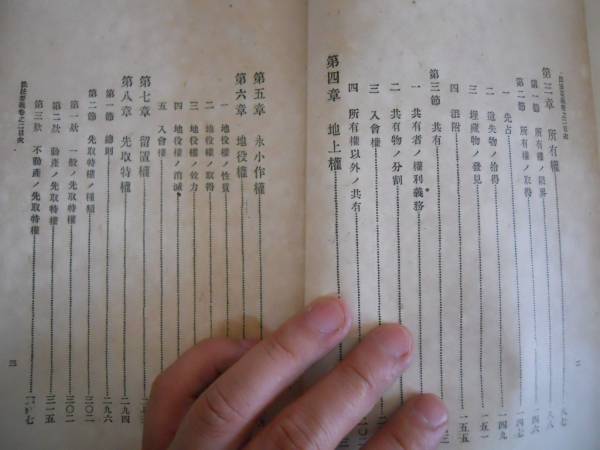 民法要義卷之二目次
第三章 所有權 八七
第一節 所有權ノ限界 八八
第二節 所有權ノ取得 一四六
一 先占 一四七
二 遺失物ノ拾得 一四九
三 埋藏物ノ發見 一五一
四 添附 一五五
第三節 共有
一 共有者ノ權利義務
二 共有物ノ分割
三 入會權
四 所有權以外ノ共有
第四章 地上權
第五章 永小作權
第六章 地役權
一 地役權ノ性質
二 地役權ノ取得
三 地役權ノ效力
四 地役權ノ消滅
五 入會權
第七章 留置權
第八章 先取特權 二九四
第一節 總則 二九六
第二節 先取特權ノ種類 三〇二
第一款 一般ノ先取特權 三〇二
第二款 動產ノ先取特權 三一五
第三款 不動產ノ先取特權
民法要義卷之二目次
三